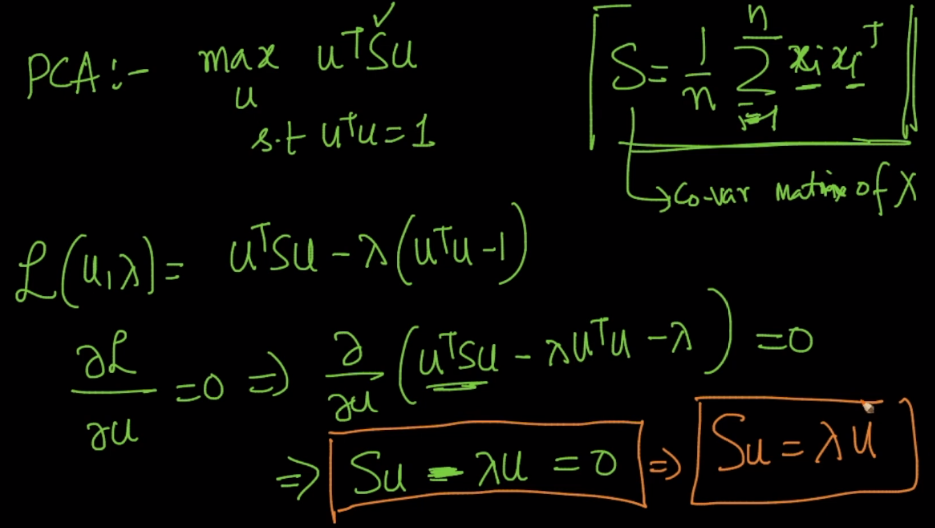 PCA:- max u^T S u ✓
u
s.t u^T u = 1
S = 1/n Σ_{i=1}^{n} x_i x_i^T
↳ Co-var Matrix of X
ℒ(u, λ) = u^T S u - λ(u^T u - 1)
∂ℒ/∂u = 0 ⇒ ∂/∂u (u^T S u - λ u^T u - λ) = 0
⇒ Su - λu = 0 ⇒ Su = λu